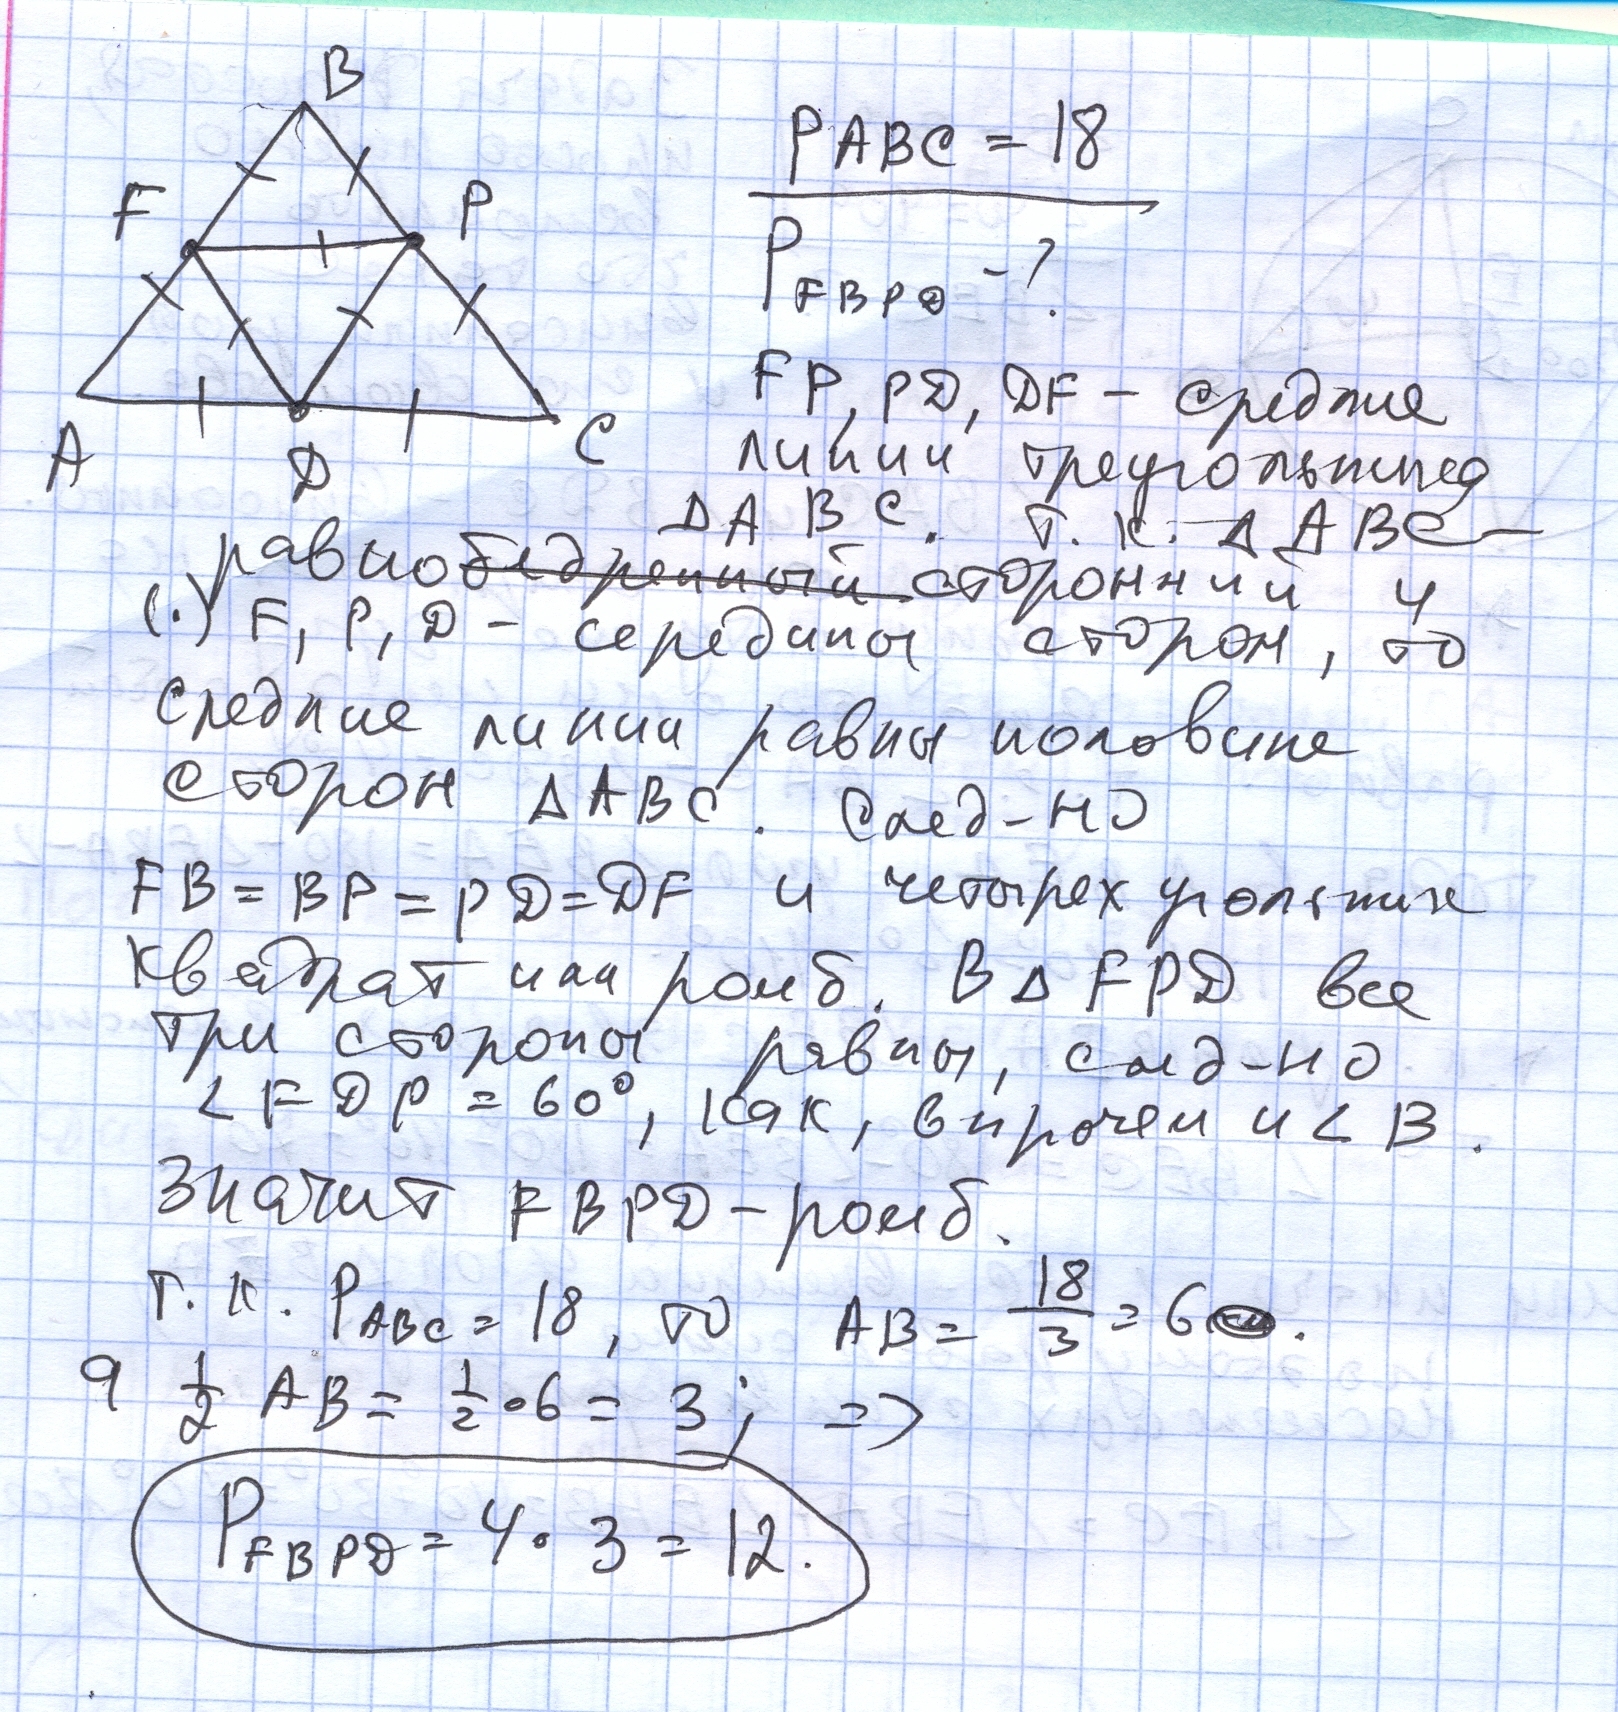 B
F
P
A
D
C
P ABC = 18
P FBPD - ?
FP, PD, DF - средние
линии треугольника
Δ ABC. т.к. Δ ABC -
равнобедренный сторонний и
(.) F, P, D - середины сторон, то
средние линии равны половине
сторон Δ ABC. След-но
FB = BP = PD = DF и четырехугольник
квадрат или ромб. В Δ FPD все
три стороны равны, след-но
∠ FDP = 60°, как, впрочем и ∠ B.
Значит FBPD - ромб.
т.к. P ABC = 18, то AB = 18/3 = 6.
а 1/2 AB = 1/2 · 6 = 3; =>
P FBPD = 4 · 3 = 12.